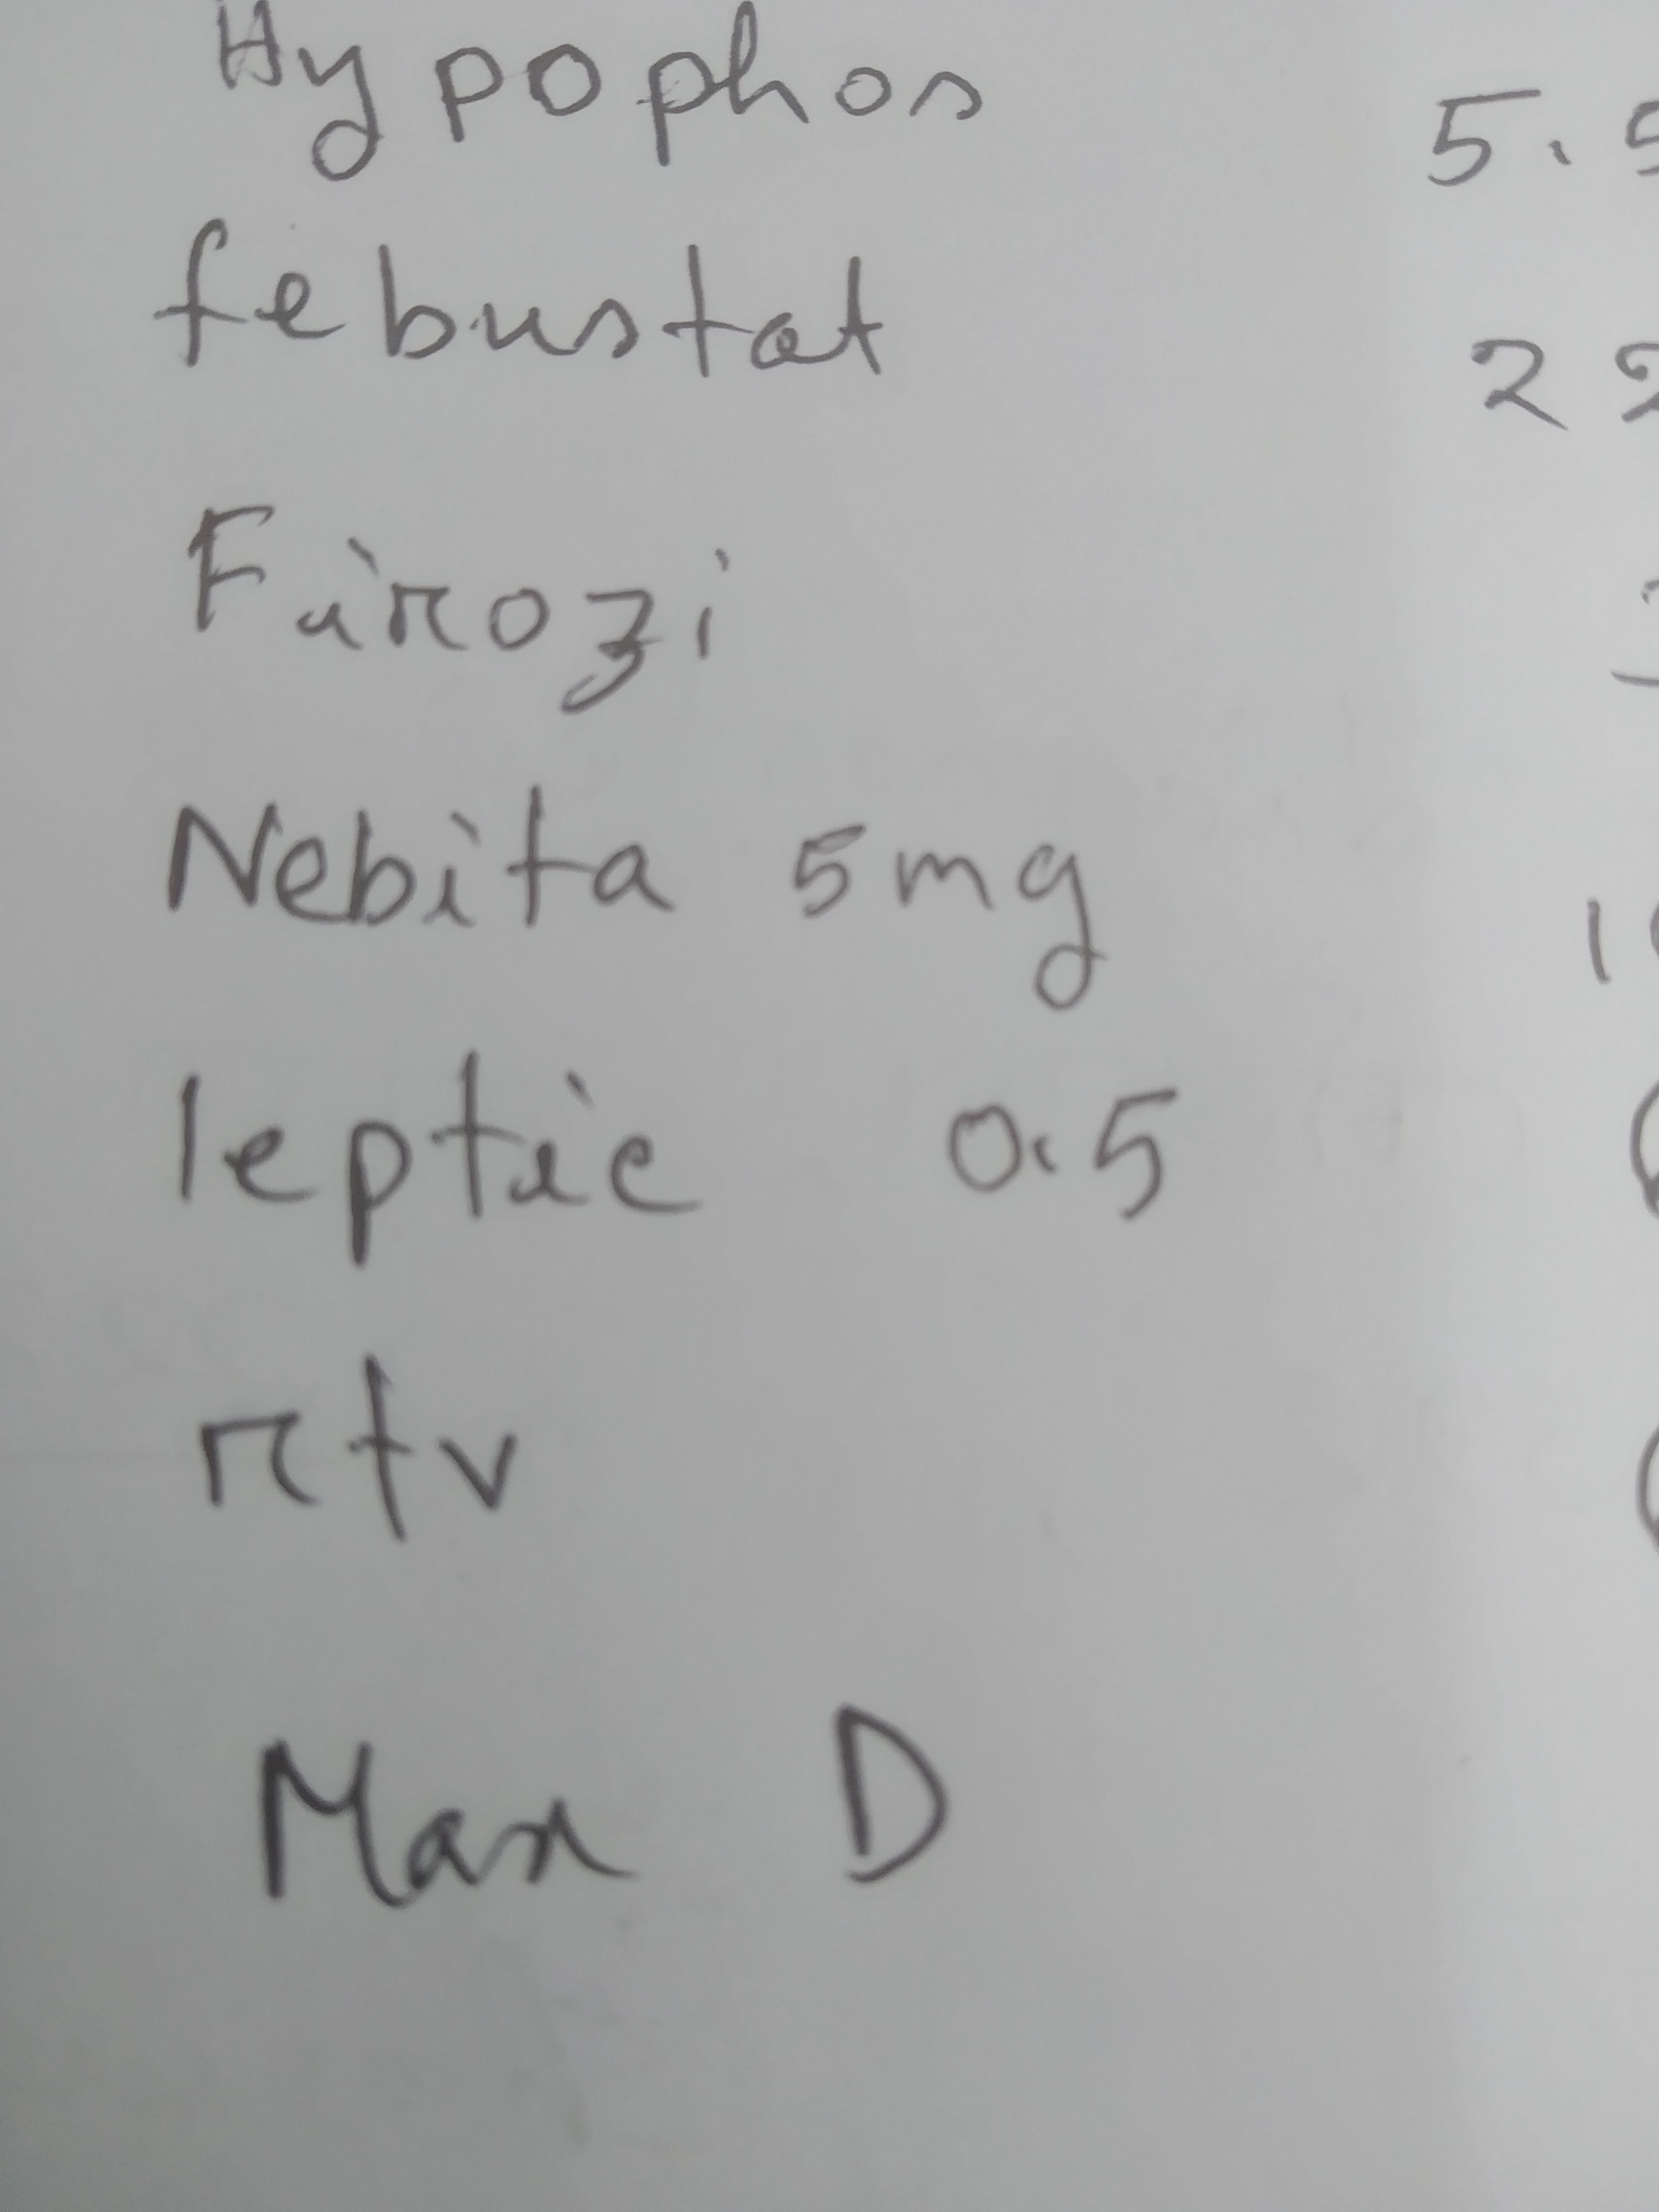 Hypophos 5.5
febustat 22
Firozi
Nebita 5mg 1
leptic 0.5
rtv
Max D